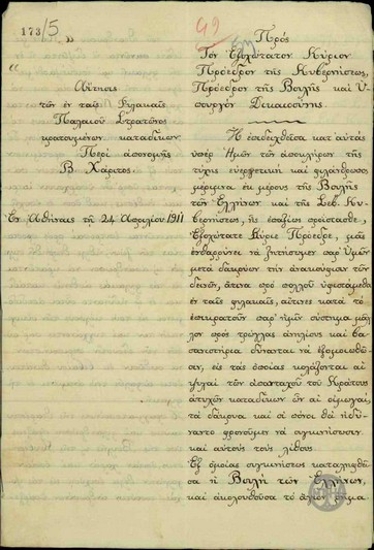 173/5
49
"
"
Αἴτησις
τῶν ἐν ταῖς Φυλακαῖς
Παλαιοῦ Στρατῶνος
κρατουμένων καταδίκων
Περὶ ἀπονομῆς
Β. Χάριτος.
Ἐν Ἀθήναις τῇ 24 Ἀπριλίου 1911
Πρὸς
Τὸν Ἐξοχώτατον Κύριον
Πρόεδρον τῆς Κυβερνήσεως,
Πρόεδρον τῆς Βουλῆς καὶ Ὑ-
πουργὸν Δικαιοσύνης
Ἡ ἐπιδειχθεῖσα κατ' αὐτὰς
ὑπὲρ Ἡμῶν τῶν ἀποκλήρων τῆς
τύχης εὐεργετικὴ καὶ φιλάνθρωπος
μέριμνα ἐκ μέρους τῆς Βουλῆς
τῶν Ἑλλήνων καὶ τῆς Σεβ. Κυ-
βερνήσεως, ἧς ἐπαξίως προΐστασθε,
Ἐξοχώτατε Κύριε Πρόεδρε, μᾶς
ἐνθαρρύνει νὰ ζητήσωμεν παρ' Ὑμῶν
μετὰ δακρύων τὴν ἀνακούφισιν τῶν
δεινῶν, ἅτινα πρὸ πολλοῦ ὑφιστάμεθα
ἐν ταῖς φυλακαῖς, αἵτινες κατὰ τὸ
ἐπικρατοῦν παρ' ἡμῖν σύστημα μᾶλ-
λον πρὸς τρώγλας ἀνηλίους καὶ βα-
σανιστήρια δύνανται νὰ ἐξομοιωθῶ-
σιν, εἰς τὰς ὁποίας κολάζονται αἱ
ψυχαὶ τῶν ἁπανταχοῦ τοῦ Κράτους
ἀτυχῶν καταδίκων ὧν αἱ οἰμωγαί,
τὰ δάκρυα καὶ οἱ πόνοι θὰ ἠδύ-
ναντο φρονοῦμεν νὰ συγκινήσωσιν
καὶ αὐτοὺς τοὺς λίθους.
Ἐξ ὁμοίας συγκινήσεως καταληφθεῖ-
σα ἡ Βουλὴ τῶν Ἑλλήνων,
καὶ ἀκολουθοῦσα τὸ ἅγιον ῥῆμα